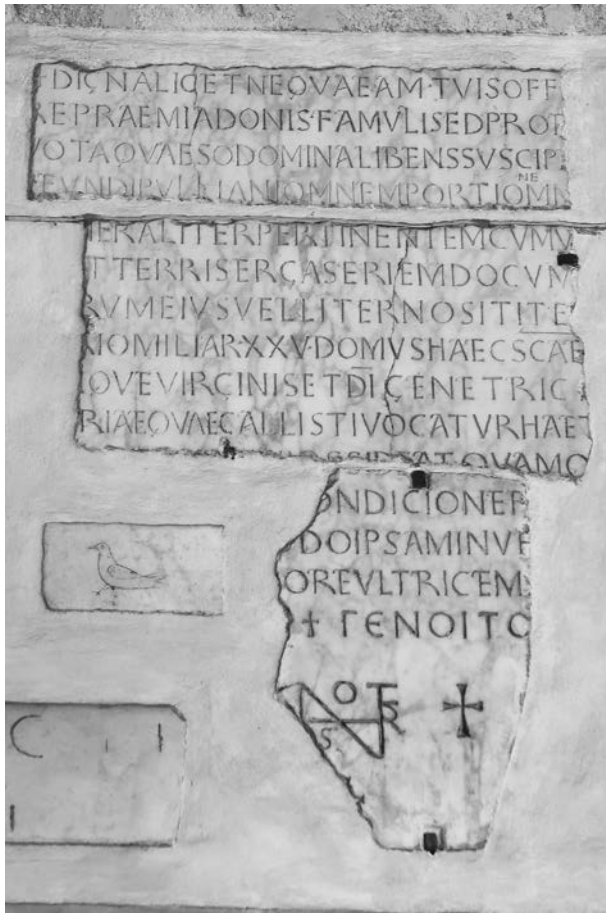 DIGNALICETNEQVAEAM·TVISOFF
REPRAEMIADONIS·FAMVLISEDPROT
VOTAQVAESODOMINALIBENSSVSCIP
NE
FVNDIPVLLIANIOMNEMPORTIOMN
NERALITERPERTINENTEMCVMV
TTERRISERGASERIEMDOCVM
RVMEIVSVELLITERNOSITITE
RIOMILIAR·XXV·DOMVSHAECSCAE
QVEVIRGINISETDIGENETRIC
RIAEQVAECALLISTIVOCATVRHAE
ATQVAMO
ONDICIONEP
DOIPSAMINVE
OREVLTRICEM
+ ΓЄNOITO
C I I
I